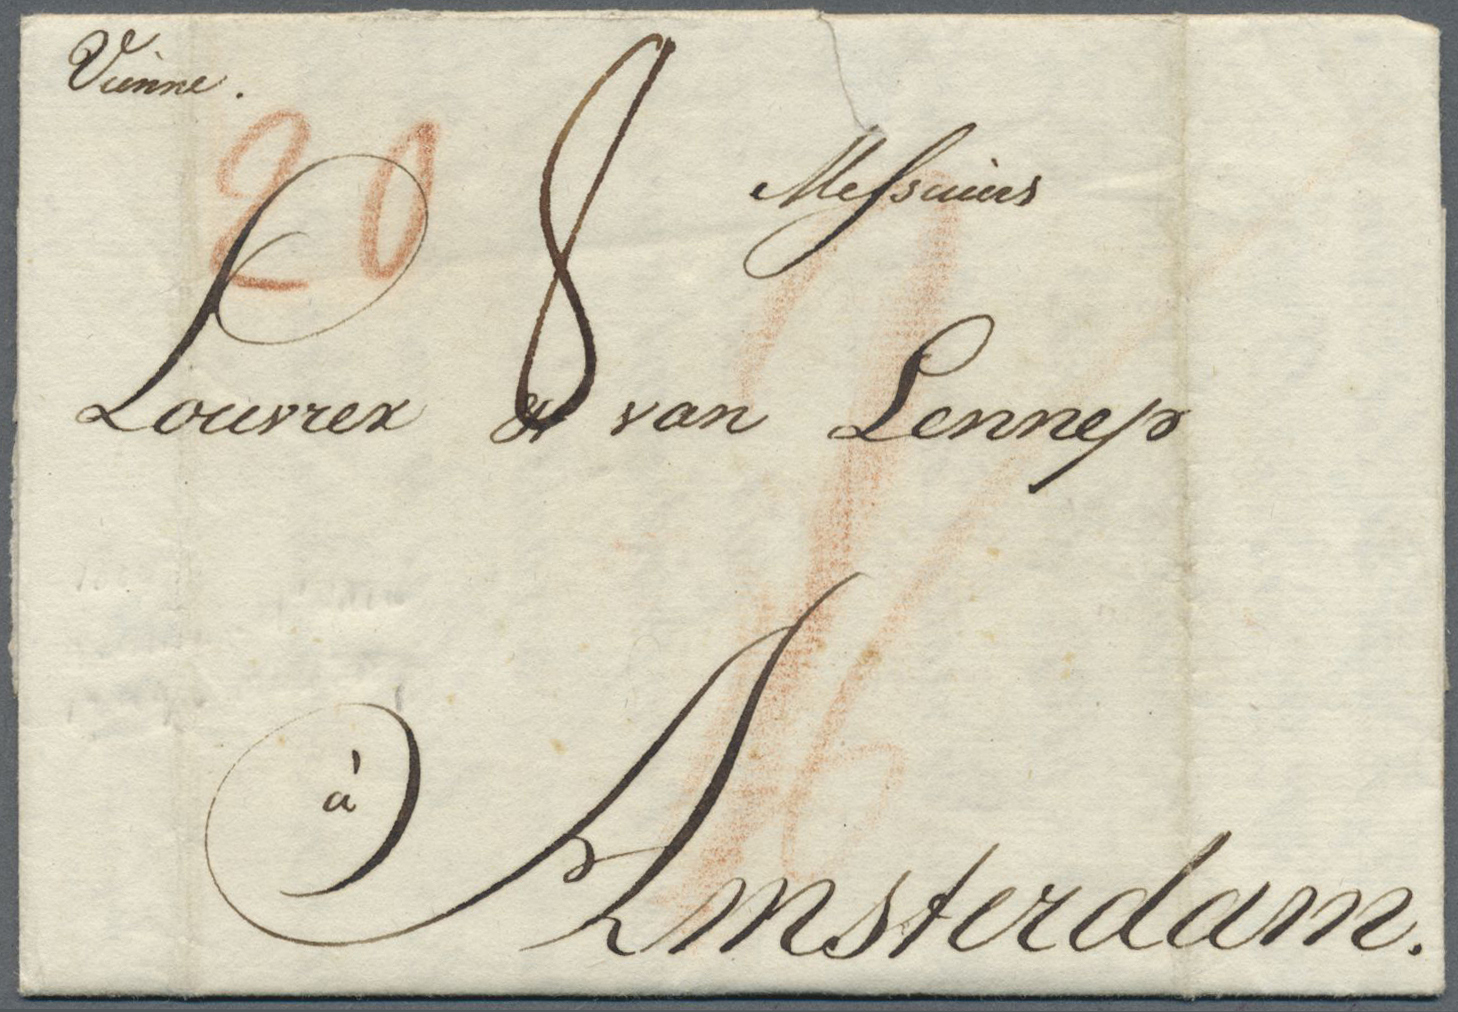 Vienne.
20 8
Messieurs
Louvrex & van Lennep
à
Amsterdam.